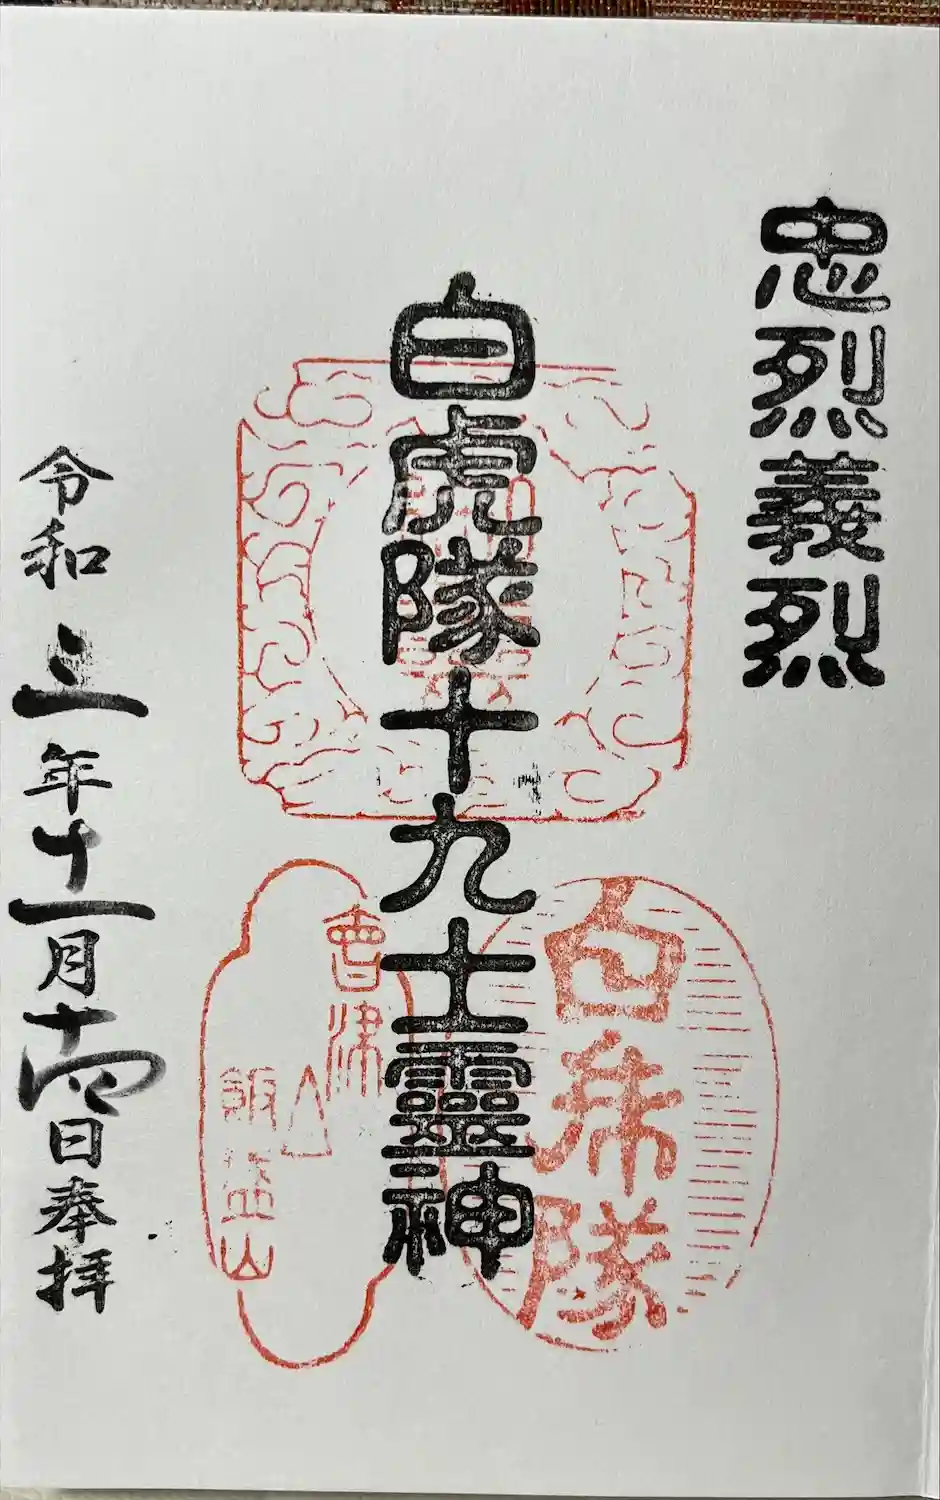 忠烈義烈
白虎隊十九士靈神
白虎隊
會津
飯盛山
令和三年十一月十四日奉拝